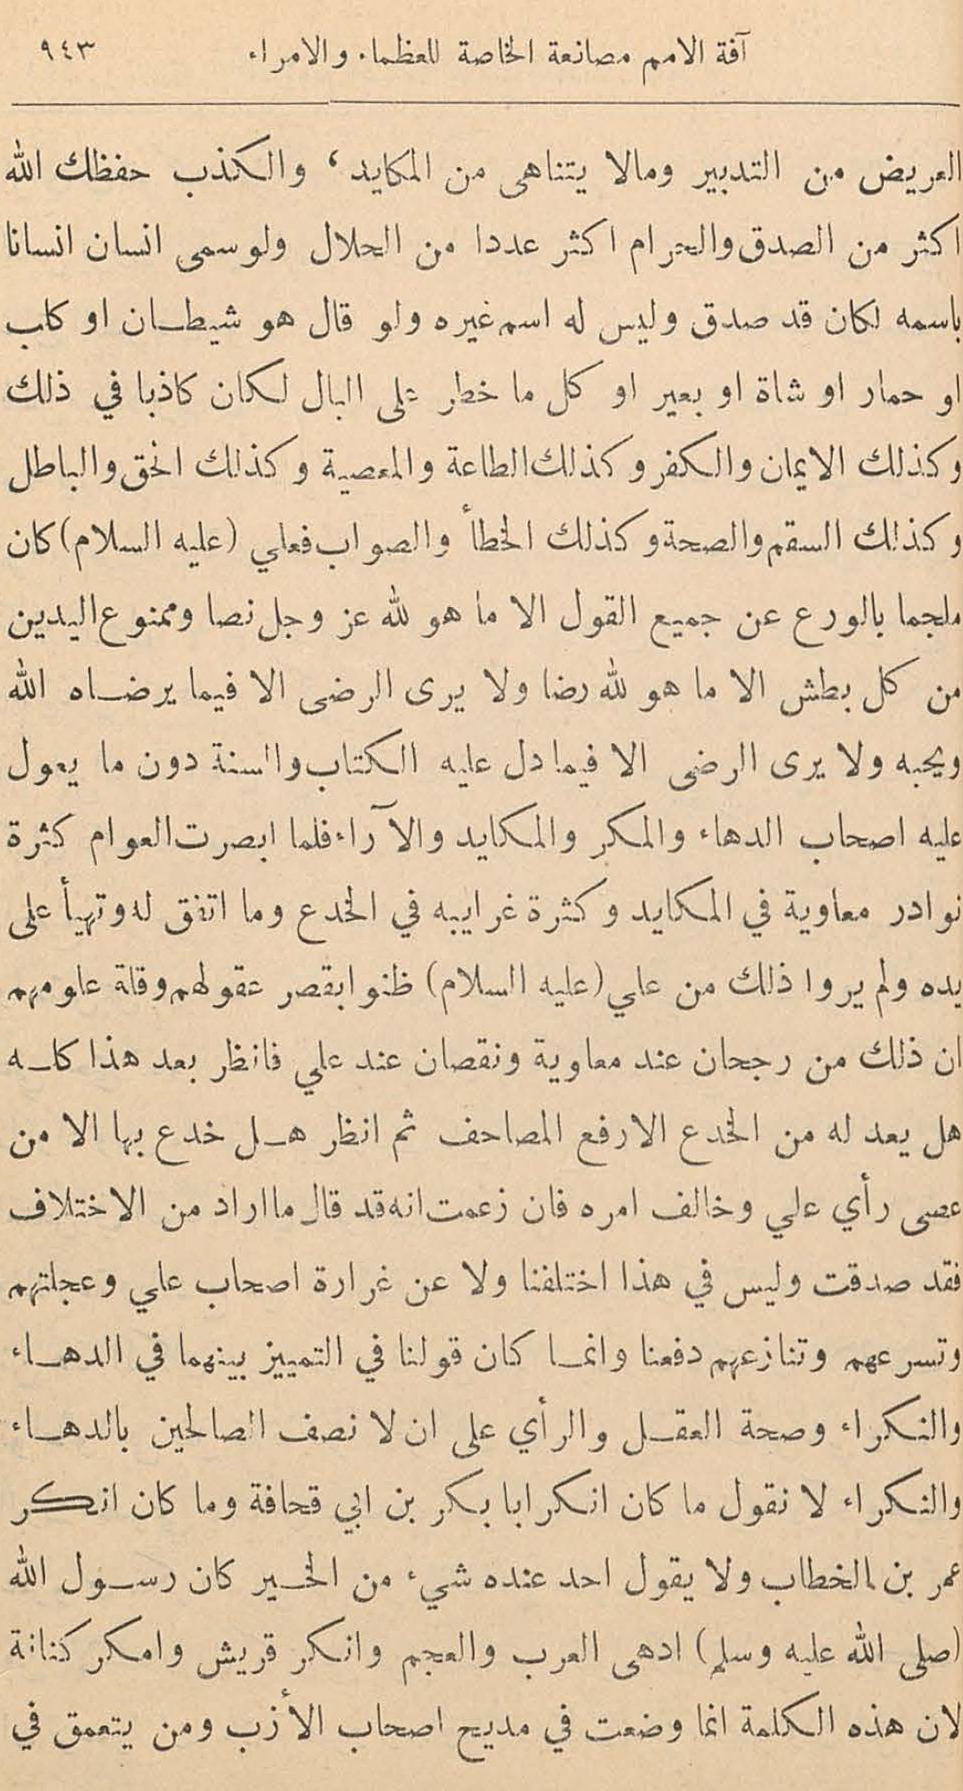 آفة الامم مصانعة الخاصة للعظماء والامراء ٩٤٣
العريض من التدبير ومالا يتناهى من المكايد، والكذب حفظك الله
اكثر من الصدق والحرام اكثر عددا من الحلال ولو سمى انسان انسانا
باسمه لكان قد صدق وليس له اسم غيره ولو قال هو شيطان او كلب
او حمار او شاة او بعير او كل ما خطر على البال لكان كاذبا في ذلك
وكذلك الايمان والكفر وكذلك الطاعة والمعصية وكذلك الحق والباطل
وكذلك السقم والصحة وكذلك الخطأ والصواب فعلي (عليه السلام) كان
ملجما بالورع عن جميع القول الا ما هو لله عز وجل نصا وممنوع اليدين
من كل بطش الا ما هو لله رضا ولا يرى الرضى الا فيما يرضاه الله
ويحبه ولا يرى الرضى الا فيما دل عليه الكتاب والسنة دون ما يعول
عليه اصحاب الدهاء والمكر والمكايد والآراء فلما ابصرت العوام كثرة
نوادر معاوية في المكايد وكثرة غرايبه في الخدع وما اتفق له وتهيأ على
يده ولم يروا ذلك من علي (عليه السلام) ظنوا بقصر عقولهم وقلة علومهم
ان ذلك من رجحان عند معاوية ونقصان عند علي فانظر بعد هذا كله
هل يعد له من الخدع الا رفع المصاحف ثم انظر هل خدع بها الا من
عصى رأي علي وخالف امره فان زعمت انه قد قال ما اراد من الاختلاف
فقد صدقت وليس في هذا اختلفنا ولا عن غرارة اصحاب علي وعجلتهم
وتسرعهم وتنازعهم دفعنا وانما كان قولنا في التمييز بينهما في الدهاء
والنكراء وصحة العقل والرأي على ان لا نصف الصالحين بالدهاء
والنكراء لا نقول ما كان انكر ابا بكر بن ابي قحافة وما كان انكر
عمر بن الخطاب ولا يقول احد عنده شيء من الخير كان رسول الله
(صلى الله عليه وسلم) ادهى العرب والعجم وانكر قريش وامكر كنانة
لان هذه الكلمة انما وضعت في مديح اصحاب الأزب ومن يتعمق في